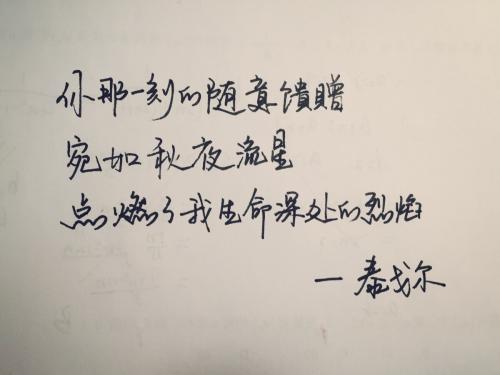 你那一刻的随意馈赠
宛如秋夜流星
点燃了我生命深处的烈焰
— 泰戈尔